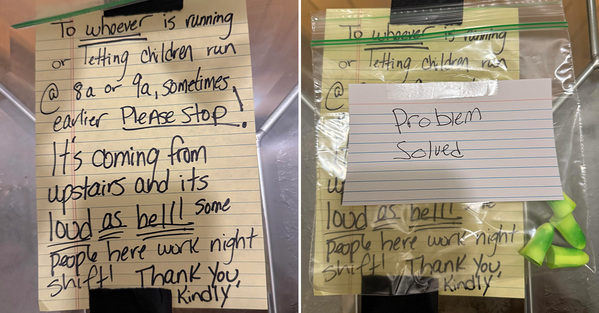 To whoever is running
or letting children run
@ 8a or 9a, sometimes
earlier Please Stop!
It's coming from
upstairs and its
loud as hell! Some
people here work night
shift! Thank You,
Kindly
To whoever is running
or letting children run
@
Problem
Solved
loud as hell! Some
people here work night
shift! Thank You,
Kindly